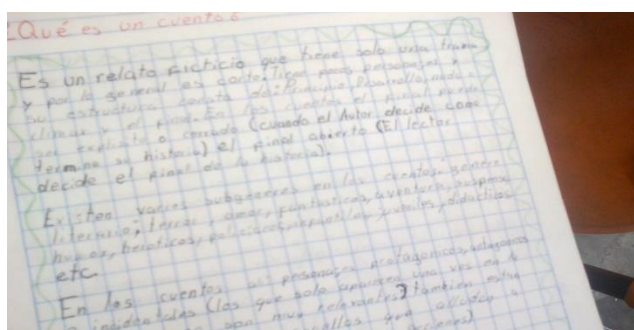 ¿Qué es un cuento?
Es un relato ficticio que tiene solo una trama
y por lo general es corto, tiene pocos personajes y
su estructura consta de: Principio, Desarrollo, nudo o
climax y el final. En los cuentos el final puede
ser explicito o cerrado (cuando el Autor decide como
termina su historia) el final abierto (El lector
decide el final de la historia).
Existen varios subgeneros en los cuentos: genero
literario; terror, amor, fantasticas, aventura, suspenso,
humor, heroticos, policiacos, infantiles, juveniles, didacticos
etc.
En los cuentos personajes protagonicos, antagonicos
incidentales (los que solo aparecen una ves en
son muy relevantes) tambien estan
que ayudan a